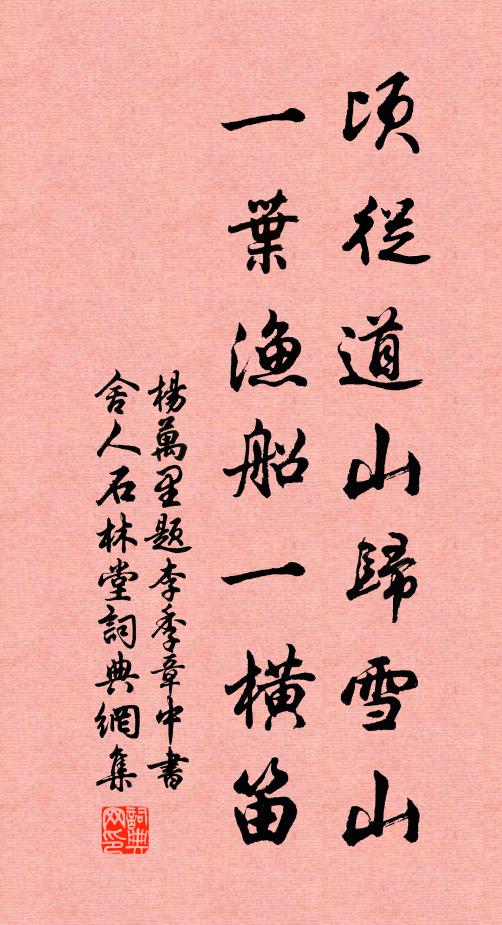 頃從道山歸雪山
一葉漁船一橫笛
楊萬里題李季章中書
舍人石林堂詞典網集
詞典网印